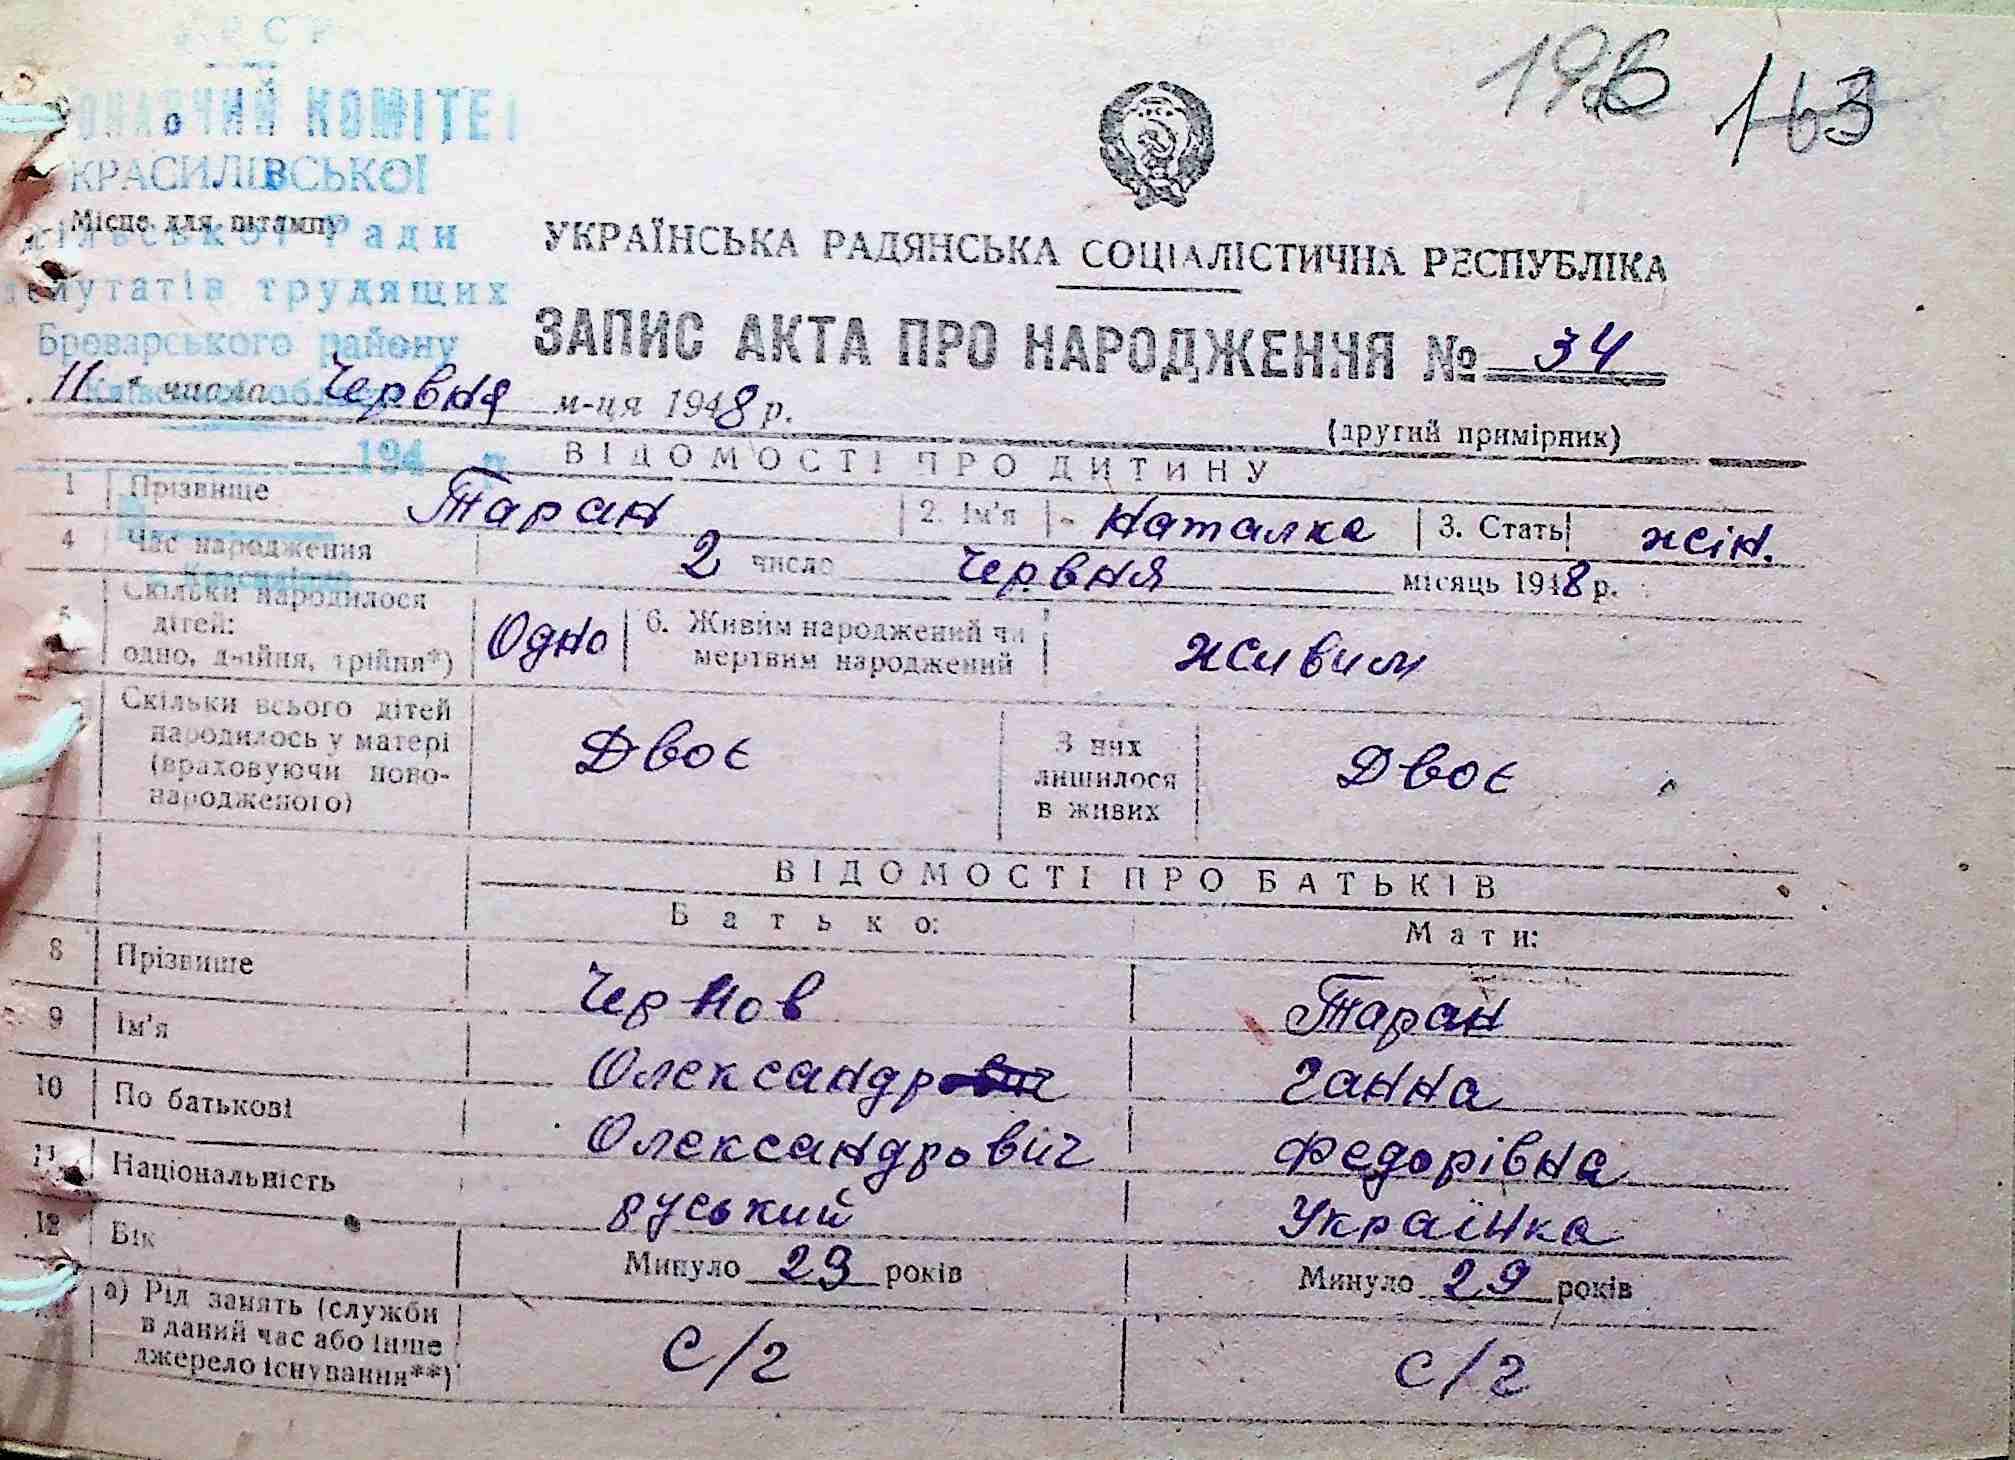 196 163
КОМІТЕТ
КРАСИЛІВСЬКОЇ
Місце для штампу
сільської Ради
депутатів трудящих
Броварського району
УКРАЇНСЬКА РАДЯНСЬКА СОЦІАЛІСТИЧНА РЕСПУБЛІКА
ЗАПИС АКТА ПРО НАРОДЖЕННЯ № 34
11 числа Червня м-ця 1948 р.
(другий примірник)
194 р
ВІДОМОСТІ ПРО ДИТИНУ
1 Прізвище Таран 2. Ім'я Наталка 3. Стать жін.
4 Час народження 2 число Червня місяць 1948 р.
5 Скільки народилося дітей: одно, двійня, трійня*) Одно 6. Живим народжений чи мертвим народжений живим
Скільки всього дітей народилось у матері (враховуючи новонародженого) Двоє З них лишилося в живих Двоє
ВІДОМОСТІ ПРО БАТЬКІВ
Батько: Мати:
8 Прізвище Чернов Таран
9 Ім'я Олександр Ганна
10 По батькові Олександровіч Федорівна
11 Національність руський Українка
12 Вік Минуло 29 років Минуло 29 років
а) Рід занять (служби в даний час або інше джерело існування**) с/г с/г